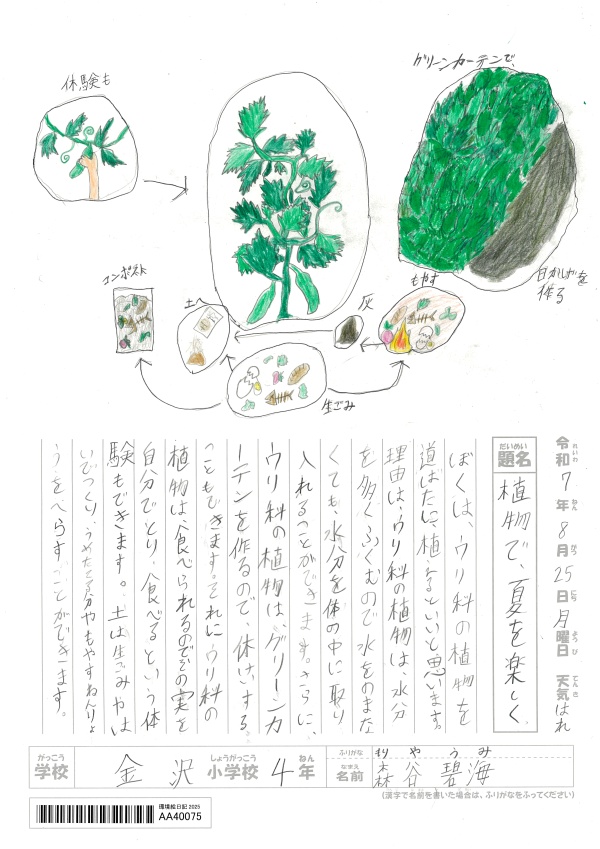 体験も
グリーンカーテンで、
日かげを
作る
コンポスト
土へ
灰
もやす
生ごみ
令和7年8月25日月曜日 天気はれ
れいわ ねん がつ にち ようび てんき
だいめい
題名
植物で、夏を楽しく
ぼくは、ウリ科の植物を
道ばたに、植えるといいと思います。
理由は、ウリ科の植物は、水分
を多くふくむので水をのまな
くても、水分を体の中に取り
入れることができます。さらに、
ウリ科の植物は、グリーンカ
ーテンを作るので、休けいする
こともできます。それにウリ科の
植物は、食べられるのでその実を
自分でとり、食べるという体
験もできます。土は生ごみやは
いでつくり、うめたて分やもやすねんりょ
うをへらすことができます。
がっこう
学校
金沢
しょうがっこう
小学校
4
ねん
年
ふりがな
もりや うみ
なまえ
名前
森谷碧海
(漢字で名前を書いた場合は、ふりがなをふってください)
環境絵日記 2025
AA40075